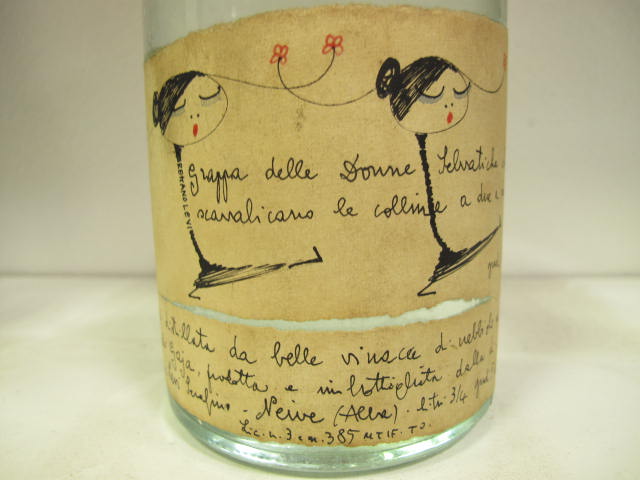 ROMANO LEVI
Grappa delle Donne Selvatiche
scavalicano le colline a due e
da belle vinacce di nebbiolo
Gaja, prodotta e imbottigliata dalla
Serafino - Neive (Alba) - litri 3/4
Lic. n. 3 cm. 385 MTIF. TO.